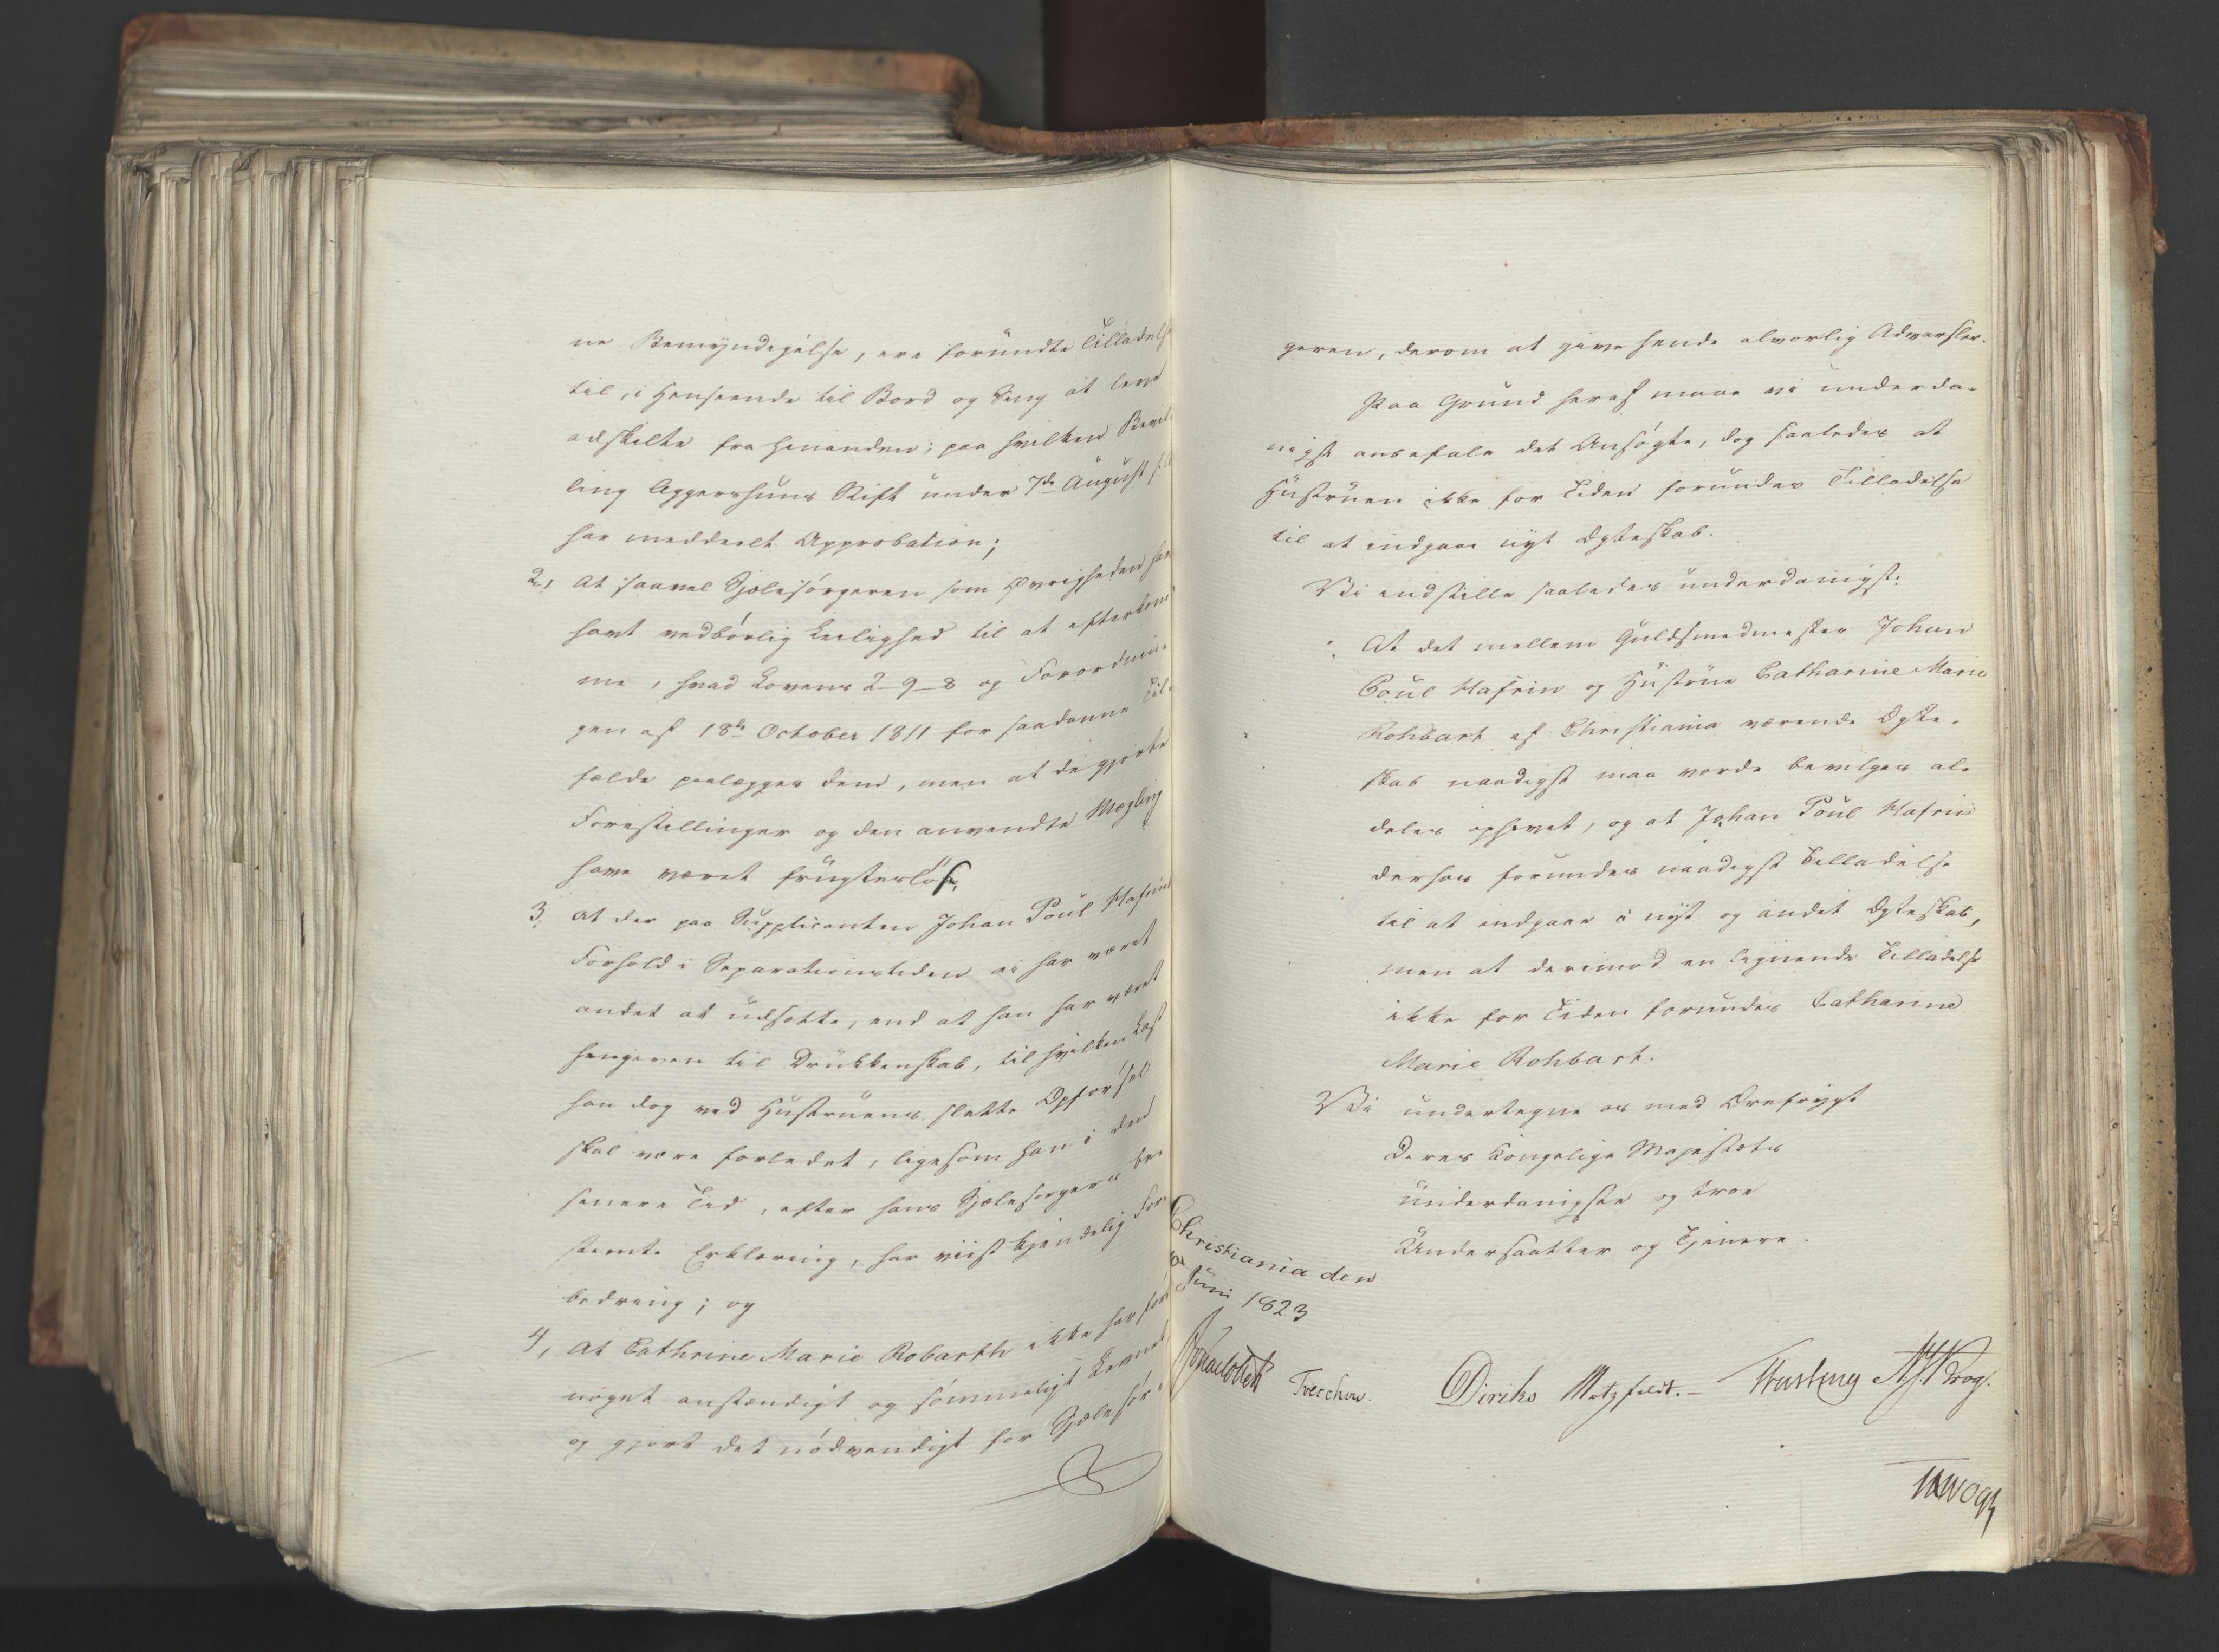 ne Bemyndigelse, ere forundte Tilladelse
til, i Henseende til Bord og Seng at leve
adskilte fra hinanden; paa hvilken Bevil-
ling Aggershuus Stift under 7de August
har meddeelt Approbation;
2, At saavel Sjælesørgeren som Øvrigheden har
havt vedbørlig Leilighed til at efterkom-
me, hvad Lovens 2-9-8 og Forordnin-
gen af 18de October 1811 for saadanne Til-
fælde paalægger dem, men at de gjorte
Forestillinger og den anvendte Mægling
have været frugtesløse,
3, at der paa Supplicanten Johan Poul Hafrin
Forhold i Separationstiden ei har været
andet at udsætte, end at han har været
hengiven til Drukkenskab, til hvilken Last
han dog ved Hustruens slette Opførsel
skal være forledet, ligesom han i den
senere Tid, efter hans Sjælesørgers be-
stemte Erklæring, har viist kjendelig For-
bedring; og
4, At Cathrine Marie Robarth ikke har ført
noget anstændigt og sømmeligt Levnet
og gjort det nødvendigt for Sjælesør-
geren, derom at give hende alvorlig Advarsler.
Paa Grund heraf maae vi underda-
nigst anbefale det Ansøgte, dog saaledes at
Hustruen ikke for Tiden forundes Tilladelse
til at indgaae nyt Ægteskab.
Vi indstille saaledes underdanigst:
At det mellem Guldsmedmester Johan
Poul Hafrin og Hustrue Catharine Marie
Rohbart af Christiania værende Ægte-
skab naadigst maa vorde bevilget al-
deles ophævet, og at Johan Poul Hafrin
derhos forundes naadigst Tilladelse
til at indgaae i nyt og andet Ægteskab,
men at derimod en lignende Tilladelse
ikke for Tiden forundes Catharine
Marie Rohbart.
Vi undertegne os med Ærefrygt
Deres Kongelige Majestæts
underdanigste og troe
Undersaatter og Tjenere.
Christiania den
Juni 1823
Treschow. Diriks Motzfeldt.- Fasting Krog.